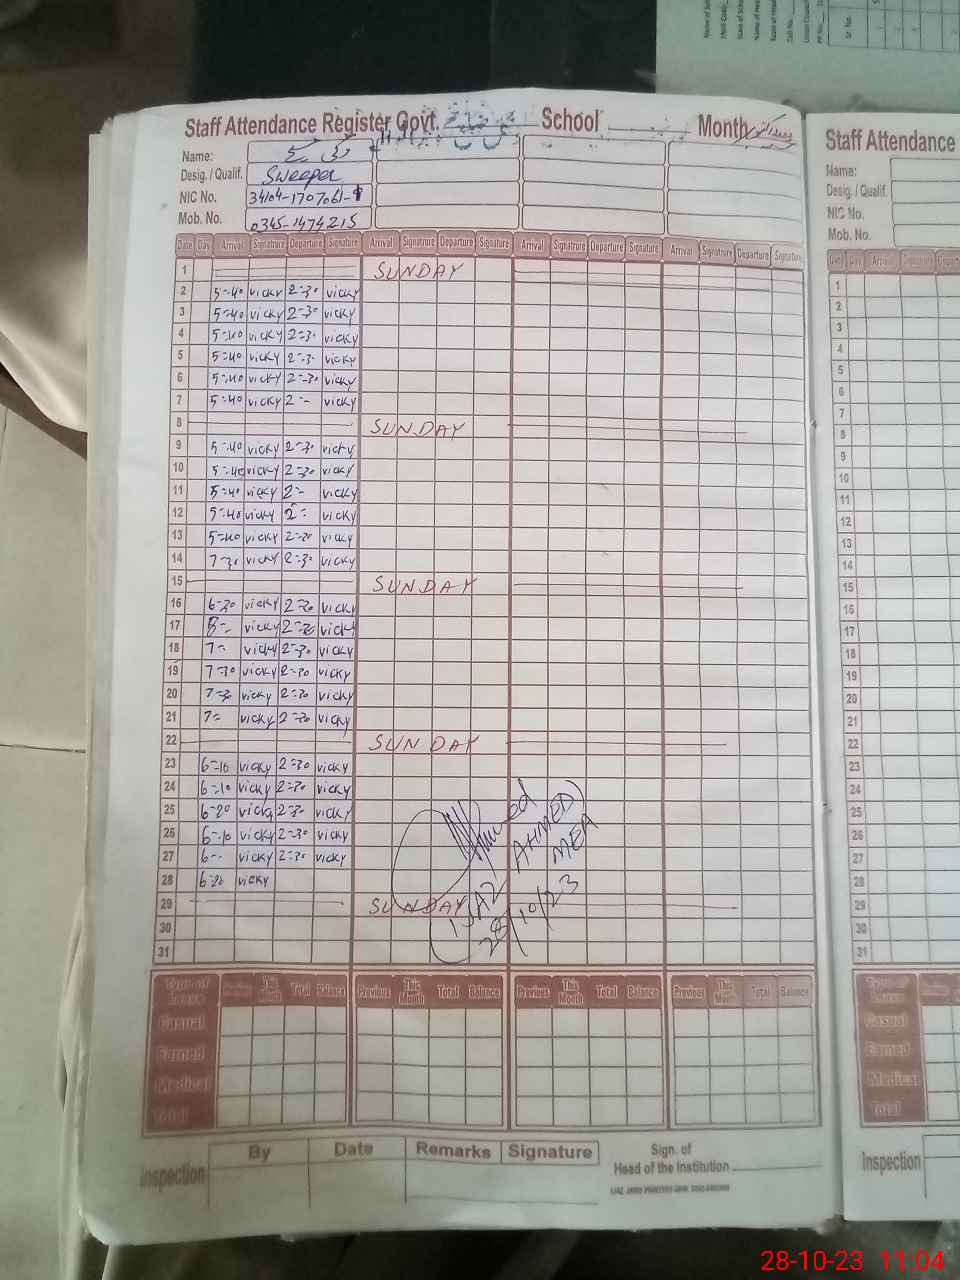 Staff Attendance Register Govt. School Month
Name:
Desig. / Qualif. Sweeper
NIC No. 34104-1707061-9
Mob. No. 0345-1474215
Date Day Arrival Signature Departure Signature Arrival Signatrure Departure Signature Arrival Signature Departure Signature Arrival Signature Departure Signature
1 SUNDAY
2 5=40 vicky 2=30 vicky
3 5=40 vicky 2=30 vicky
4 5=40 vicky 2=30 vicky
5 5=40 vicky 2=30 vicky
6 5=40 vicky 2=30 vicky
7 5=40 vicky 2=- vicky
8 SUNDAY
9 5=40 vicky 2=30 vicky
10 5=40 vicky 2=30 vicky
11 5=40 vicky 2=- vicky
12 5=40 vicky 2= vicky
13 5=40 vicky 2=30 vicky
14 7=30 vicky 2=30 vicky
15 SUNDAY
16 6=30 vicky 2=30 vicky
17 vicky 2=30 vicky
18 7= vicky 2=30 vicky
19 7=30 vicky 2=30 vicky
20 7=30 vicky 2=30 vicky
21 7= vicky 2=30 vicky
22 SUNDAY
23 6=10 vicky 2=30 vicky
24 6=10 vicky 2=30 vicky
25 6=20 vicky 2=30 vicky
26 6=10 vicky 2=30 vicky
27 6=- vicky 2=30 vicky
28 6=20 vicky
29 SUNDAY
30
31
(IJAZ AHMED)
MEA
28/10/23
Type of Leave Previous This Month Total Balance Previous This Month Total Balance Previous This Month Total Balance Previous This Month Total Balance
Casual
Earned
Medical
Total
Inspection By Date Remarks Signature
Sign. of
Head of the Institution
Staff Attendance
Name:
Desig. / Qualif.
NIC No.
Mob. No.
Date Day Arrival Signature
1
2
3
4
5
6
7
8
9
10
11
12
13
14
15
16
17
18
19
20
21
22
23
24
25
26
27
28
29
30
31
Type of Leave
Casual
Earned
Medical
Total
Inspection
28-10-23 11:04